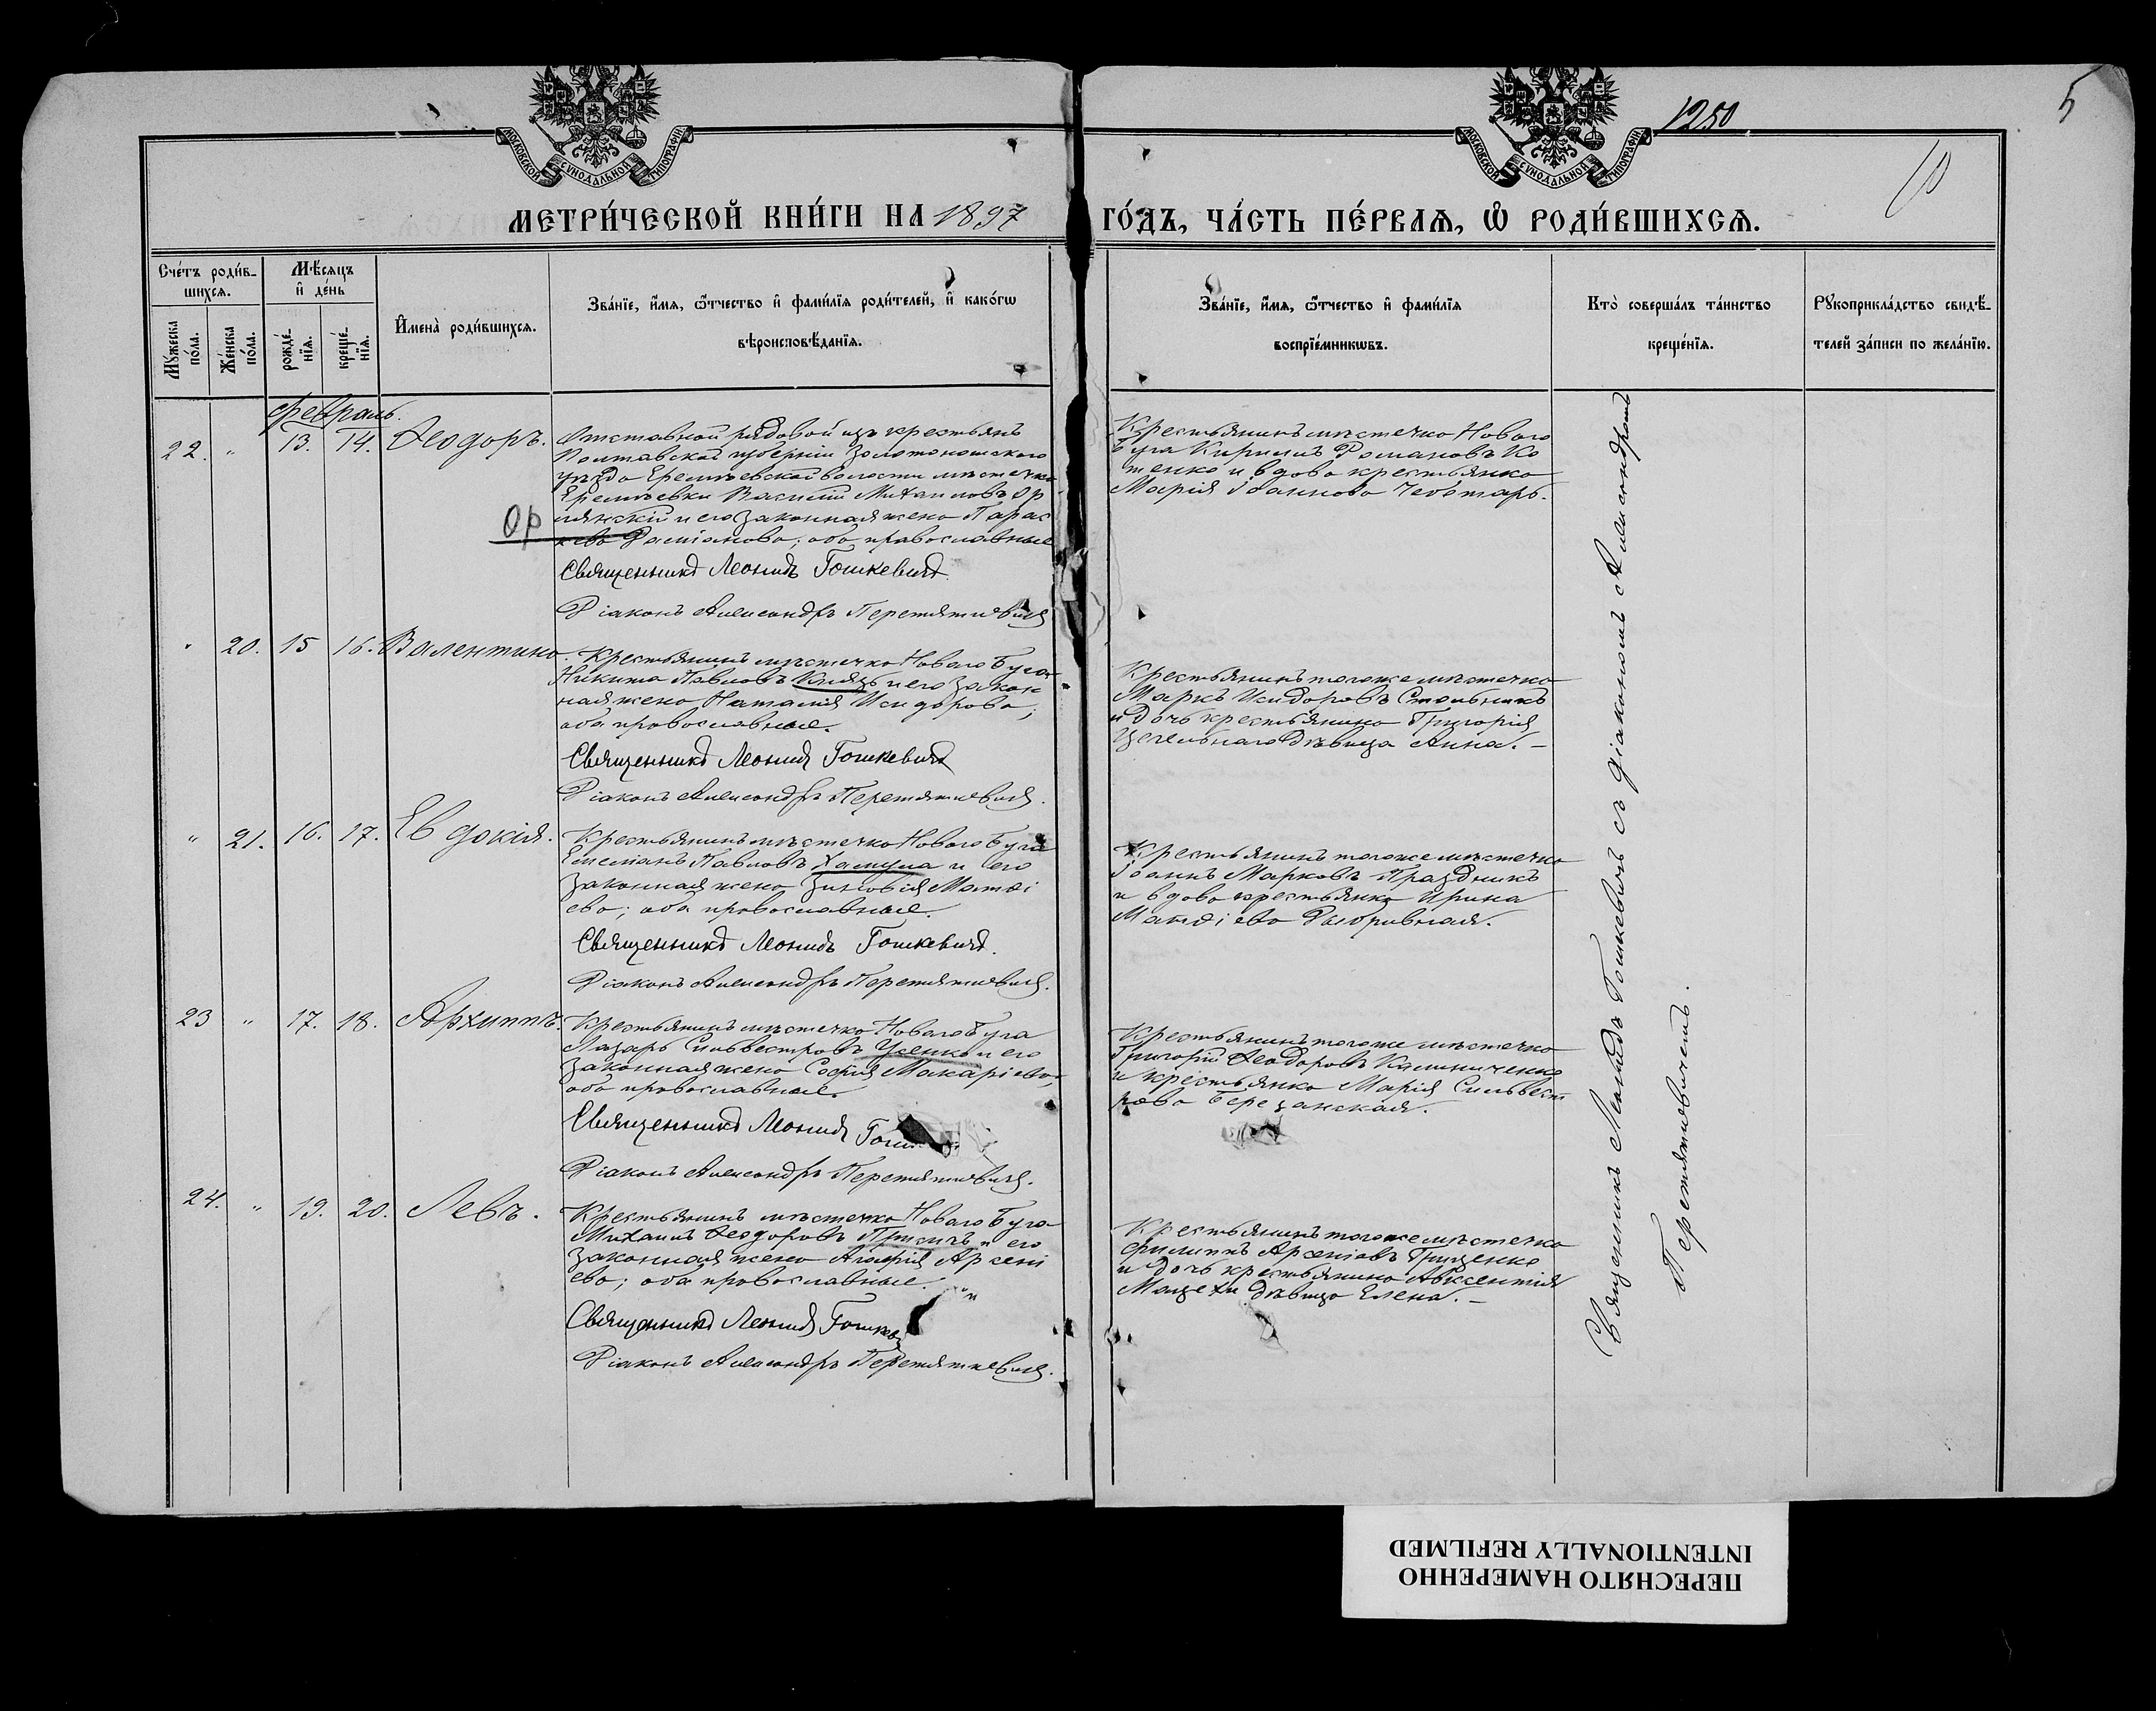 5
1250
10
МОСКОВСКОЙ СУНОДАЛЬНОЙ ТИПОГРАФІИ
МОСКОВСКОЙ СУНОДАЛЬНОЙ ТИПОГРАФІИ
МЕТРИ́ЧЕСКОЙ КНИ́ГИ НА 1897 ГО́ДЪ, ЧА́СТЬ ПЕ́РВАѦ, Ѿ РОДИ́ВШИХСѦ.
Сче́тъ роди́в-
шихсѧ.
Мѣ́сѧцъ
и҆ де́нь
Мꙋ́жеска
по́ла.
Же́нска
по́ла.
рожде́-
нїѧ.
креще́-
нїѧ.
И҆мена̀ роди́вшихсѧ.
Зва́нїе, и҆́мѧ, ѻ҆́тчество и҆ фами́лїѧ роди́телей, и҆ како́гѡ
вѣроисповѣ́данїѧ.
Зва́нїе, и҆́мѧ, ѻ҆́тчество и҆ фами́лїѧ
воспрїе́мникѡвъ.
Кто̀ соверша́лъ та́инство
креще́нїѧ.
Рꙋкоприкла́дство свидѣ́-
телей за́писи по жела́нїю.
Февраль.
22. " 13. 14. Ѳеодоръ.
Отставной рядовой изъ крестьянъ
Полтавской губерніи Золотоношского
уѣзда Еремѣевской волости мѣстечка
Еремѣевки Василій Михаиловъ Ор
лянскій и его законная жена Парас
кева Даміанова; оба православные
Ор
Священникъ Леонидъ Гошкевичъ.
Діаконъ Александръ Перетяткевичъ
Крестьянинъ мѣстечка Новаго
Буга Кириллъ Романовъ Ко
тенко и вдова крестьянка
Марія Іоаннова Чеботарь.
" 20. 15 16. Валентина.
Крестьянинъ мѣстечка Новаго Буга
Никита Павловъ Князь и его закон
ная жена Наталія Исидорова;
оба православные.
Священникъ Леонидъ Гошкевичъ
Діаконъ Александръ Перетяткевичъ.
Крестьянинъ тогоже мѣстечка
Маркъ Исидоровъ Стольникъ
и дочь крестьянина Григорія
Цегельнаго дѣвица Анна. –
" 21. 16. 17. Евдокія.
Крестьянинъ мѣстечка Новаго Буга
Емеліанъ Павловъ Хамула и его
законная жена Зиновія Матѳі
ева; оба православные.
Священникъ Леонидъ Гошкевичъ.
Діаконъ Александръ Перетяткевичъ.
Крестьянинъ тогоже мѣстечка
Іоаннъ Марковъ Праздникъ
и вдова крестьянка Ирина
Матѳіева
23 " 17. 18. Архиппъ.
Крестьянинъ мѣстечка Новаго Буга
Лазарь Сильвестровъ Усенко и его
законная жена Софія Макаріева;
оба православные.
Священникъ Леонидъ
Діаконъ Александръ Перетяткевичъ.
Крестьянинъ тогоже мѣстечка
Григорій Ѳеодоровъ Калиниченко
и крестьянка Марія Сильвест
рова Березанская.
24. " 19. 20. Левъ.
Крестьянинъ мѣстечка Новаго Буга
Михаилъ Ѳеодоровъ и его
законная жена Агафія Арсені
ева; оба православные.
Священникъ Леонидъ
Діаконъ Александръ Перетяткевичъ.
Крестьянинъ тогоже мѣстечка
Филиппъ Арсеніевъ Грищенко
и дочь крестьянина Авксентія
дѣвица Елена. –
Священникъ Леонидъ Гошкевичъ съ діакономъ Александромъ
Перетяткевичемъ.
ПЕРЕСНЯТО НАМЕРЕННО
INTENTIONALLY REFILMED